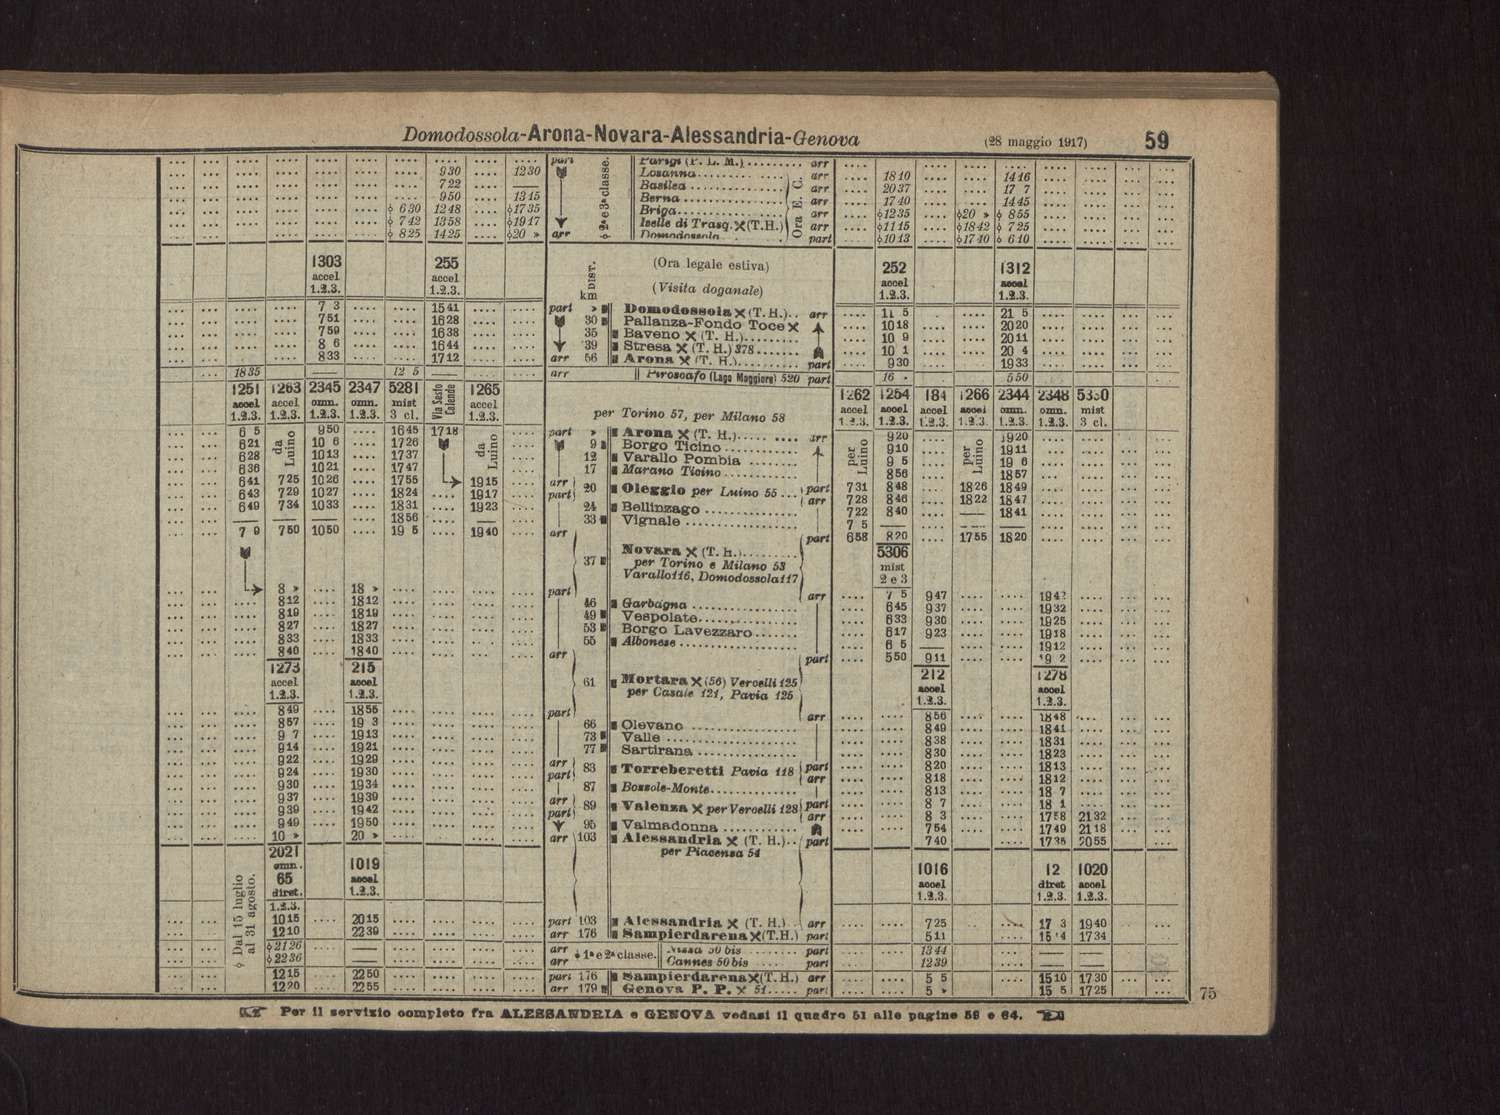 Domodossola-Arona-Novara-Alessandria-Genova (28 maggio 1917) 59
.... 930 .... 1230 part Parigi (P. L. M.) arr
Losanna arr .... 1810 .... .... 1416
722 —— Basilea arr 2037 17 7
950 1315 Berna arr 1740 1445
ϕ 630 1248 ϕ1735 Briga arr ϕ1235 ϕ20 » ϕ 855
ϕ 742 1358 ϕ1917 Iselle di Trasq. (T.H.) arr ϕ1115 ϕ1842 ϕ 725
ϕ 825 1425 ϕ20 » arr Domodossola part ϕ1013 ϕ1740 ϕ 610
ϕ 2ª e 3ª classe.
Ora E. C.
1303 255 DIST. (Ora legale estiva) 252 1312
accel accel accel accel
1.2.3. 1.2.3. km (Visita doganale) 1.2.3. 1.2.3.
7 3 1541 part » Domodossola (T.H.) arr 11 5 21 5
751 1628 30 Pallanza-Fondo Toce 1018 2020
759 1638 35 Baveno (T. H.) 10 9 2011
8 6 1644 39 Stresa (T. H.) 378 10 1 20 4
833 1712 arr 56 Arona (T. H.) part 930 1933
1835 —— 12 5 —— arr Piroscafo (Lago Maggiore) 520 part 16 550
1251 1263 2345 2347 5281 Via Sesto Calende 1265 1262 1254 184 1266 2344 2348 5330
accel accel omn. omn. mist accel per Torino 57, per Milano 58 accel accel accel accel omn. omn. mist
1.2.3. 1.2.3. 1.2.3. 1.2.3. 3 cl. 1.2.3. 1.2.3. 1.2.3. 1.2.3. 1.2.3. 1.2.3. 1.2.3. 3 cl.
6 5 da Luino 950 1645 1718 da Luino part » Arona (T. H.) arr per Luino 920 per Luino 1920
621 10 6 1726 9 Borgo Ticino 910 1911
628 1013 1737 12 Varallo Pombia 9 5 19 6
636 1021 1747 17 Marano Ticino 856 1857
641 725 1026 1755 1915 arr 20 Oleggio per Luino 55 part 731 848 1826 1849
643 729 1027 1824 1917 part arr 728 846 1822 1847
649 734 1033 1831 1923 24 Bellinzago 722 840 —— 1841
—— —— —— 1856 —— 33 Vignale 7 5 —— ——
7 9 750 1050 19 5 1940 arr part 658 820 1755 1820
37 Novara (T. H.) 5306
per Torino e Milano 53 mist
Varallo 116, Domodossola 117 2 e 3
8 » 18 » part arr 7 5 947 1942
812 1812 46 Garbagna 645 937 1932
819 1819 49 Vespolate 633 930 1925
827 1827 53 Borgo Lavezzaro 617 923 1918
833 1833 55 Albonese 6 5 —— 1912
840 1840 arr part 550 911 19 2
1273 215 61 Mortara (56) Vercelli 125 212 1278
accel accel per Casale 121, Pavia 125 accel accel
1.2.3. 1.2.3. 1.2.3. 1.2.3.
849 1855 part arr 856 1848
857 19 3 66 Olevano 849 1841
9 7 1913 73 Valle 838 1831
914 1921 77 Sartirana 830 1823
922 1929 arr 83 Torreberetti Pavia 118 part 820 1813
924 1930 part arr 818 1812
930 1934 87 Bozzole-Monte 813 18 7
937 1939 arr 89 Valenza per Vercelli 128 part 8 7 18 1
939 1942 part arr 8 3 1758 2132
949 1950 95 Valmadonna 754 1749 2118
10 » 20 » arr 103 Alessandria (T. H.) part 740 1735 2055
per Piacenza 54
2021 1019 1016 12 1020
omn. accel accel diret accel
65 1.2.3. 1.2.3. 1.2.3. 1.2.3.
diret.
1.2.3.
ϕ Dal 15 luglio al 31 agosto.
1015 2015 part 103 Alessandria (T. H.) arr 725 17 3 1940
1210 2239 arr 176 Sampierdarena (T.H.) part 511 1734
ϕ2126 —— arr ϕ 1ª e 2ª classe. Nizza 50 bis part 1344
ϕ2236 —— arr Cannes 50 bis part 1239
1215 2250 part 176 Sampierdarena (T.H.) arr 5 5 1510 1730
1220 2255 arr 179 Genova P. P. 51 part 5 » 15 5 1725
Per il servizio completo fra ALESSANDRIA e GENOVA vedasi il quadro 51 alle pagine 59 e 64.
75